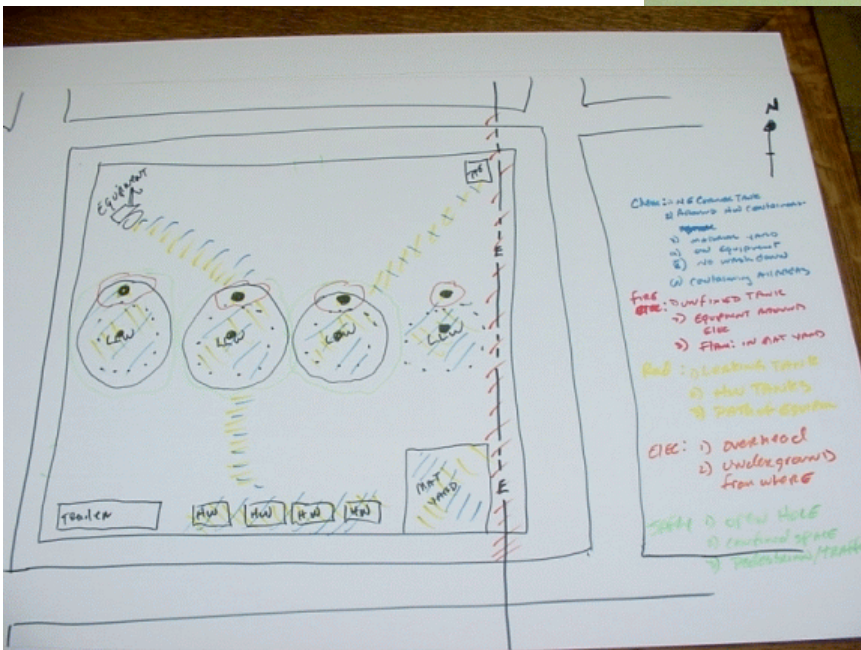 N
EQUIPMENT
E
LLW
LLW
LLW
LLW
MAT
YARD
E
Trailer
HW
HW
HW
HW
Chem: 1) NE Corner Tank
2) Around HW containment
3) material yard
4) on equipment
5) no wash down
FIRE
1) unfinished Tank
2) Equipment around
3) Flam: in mat yard
Rad: 1) Leaking Tank
2) HW Tanks
3) Path of equipm
Elec: 1) overhead
2) underground
from where
1) open Hole
2) confined space
3) Pedestrian/traffic